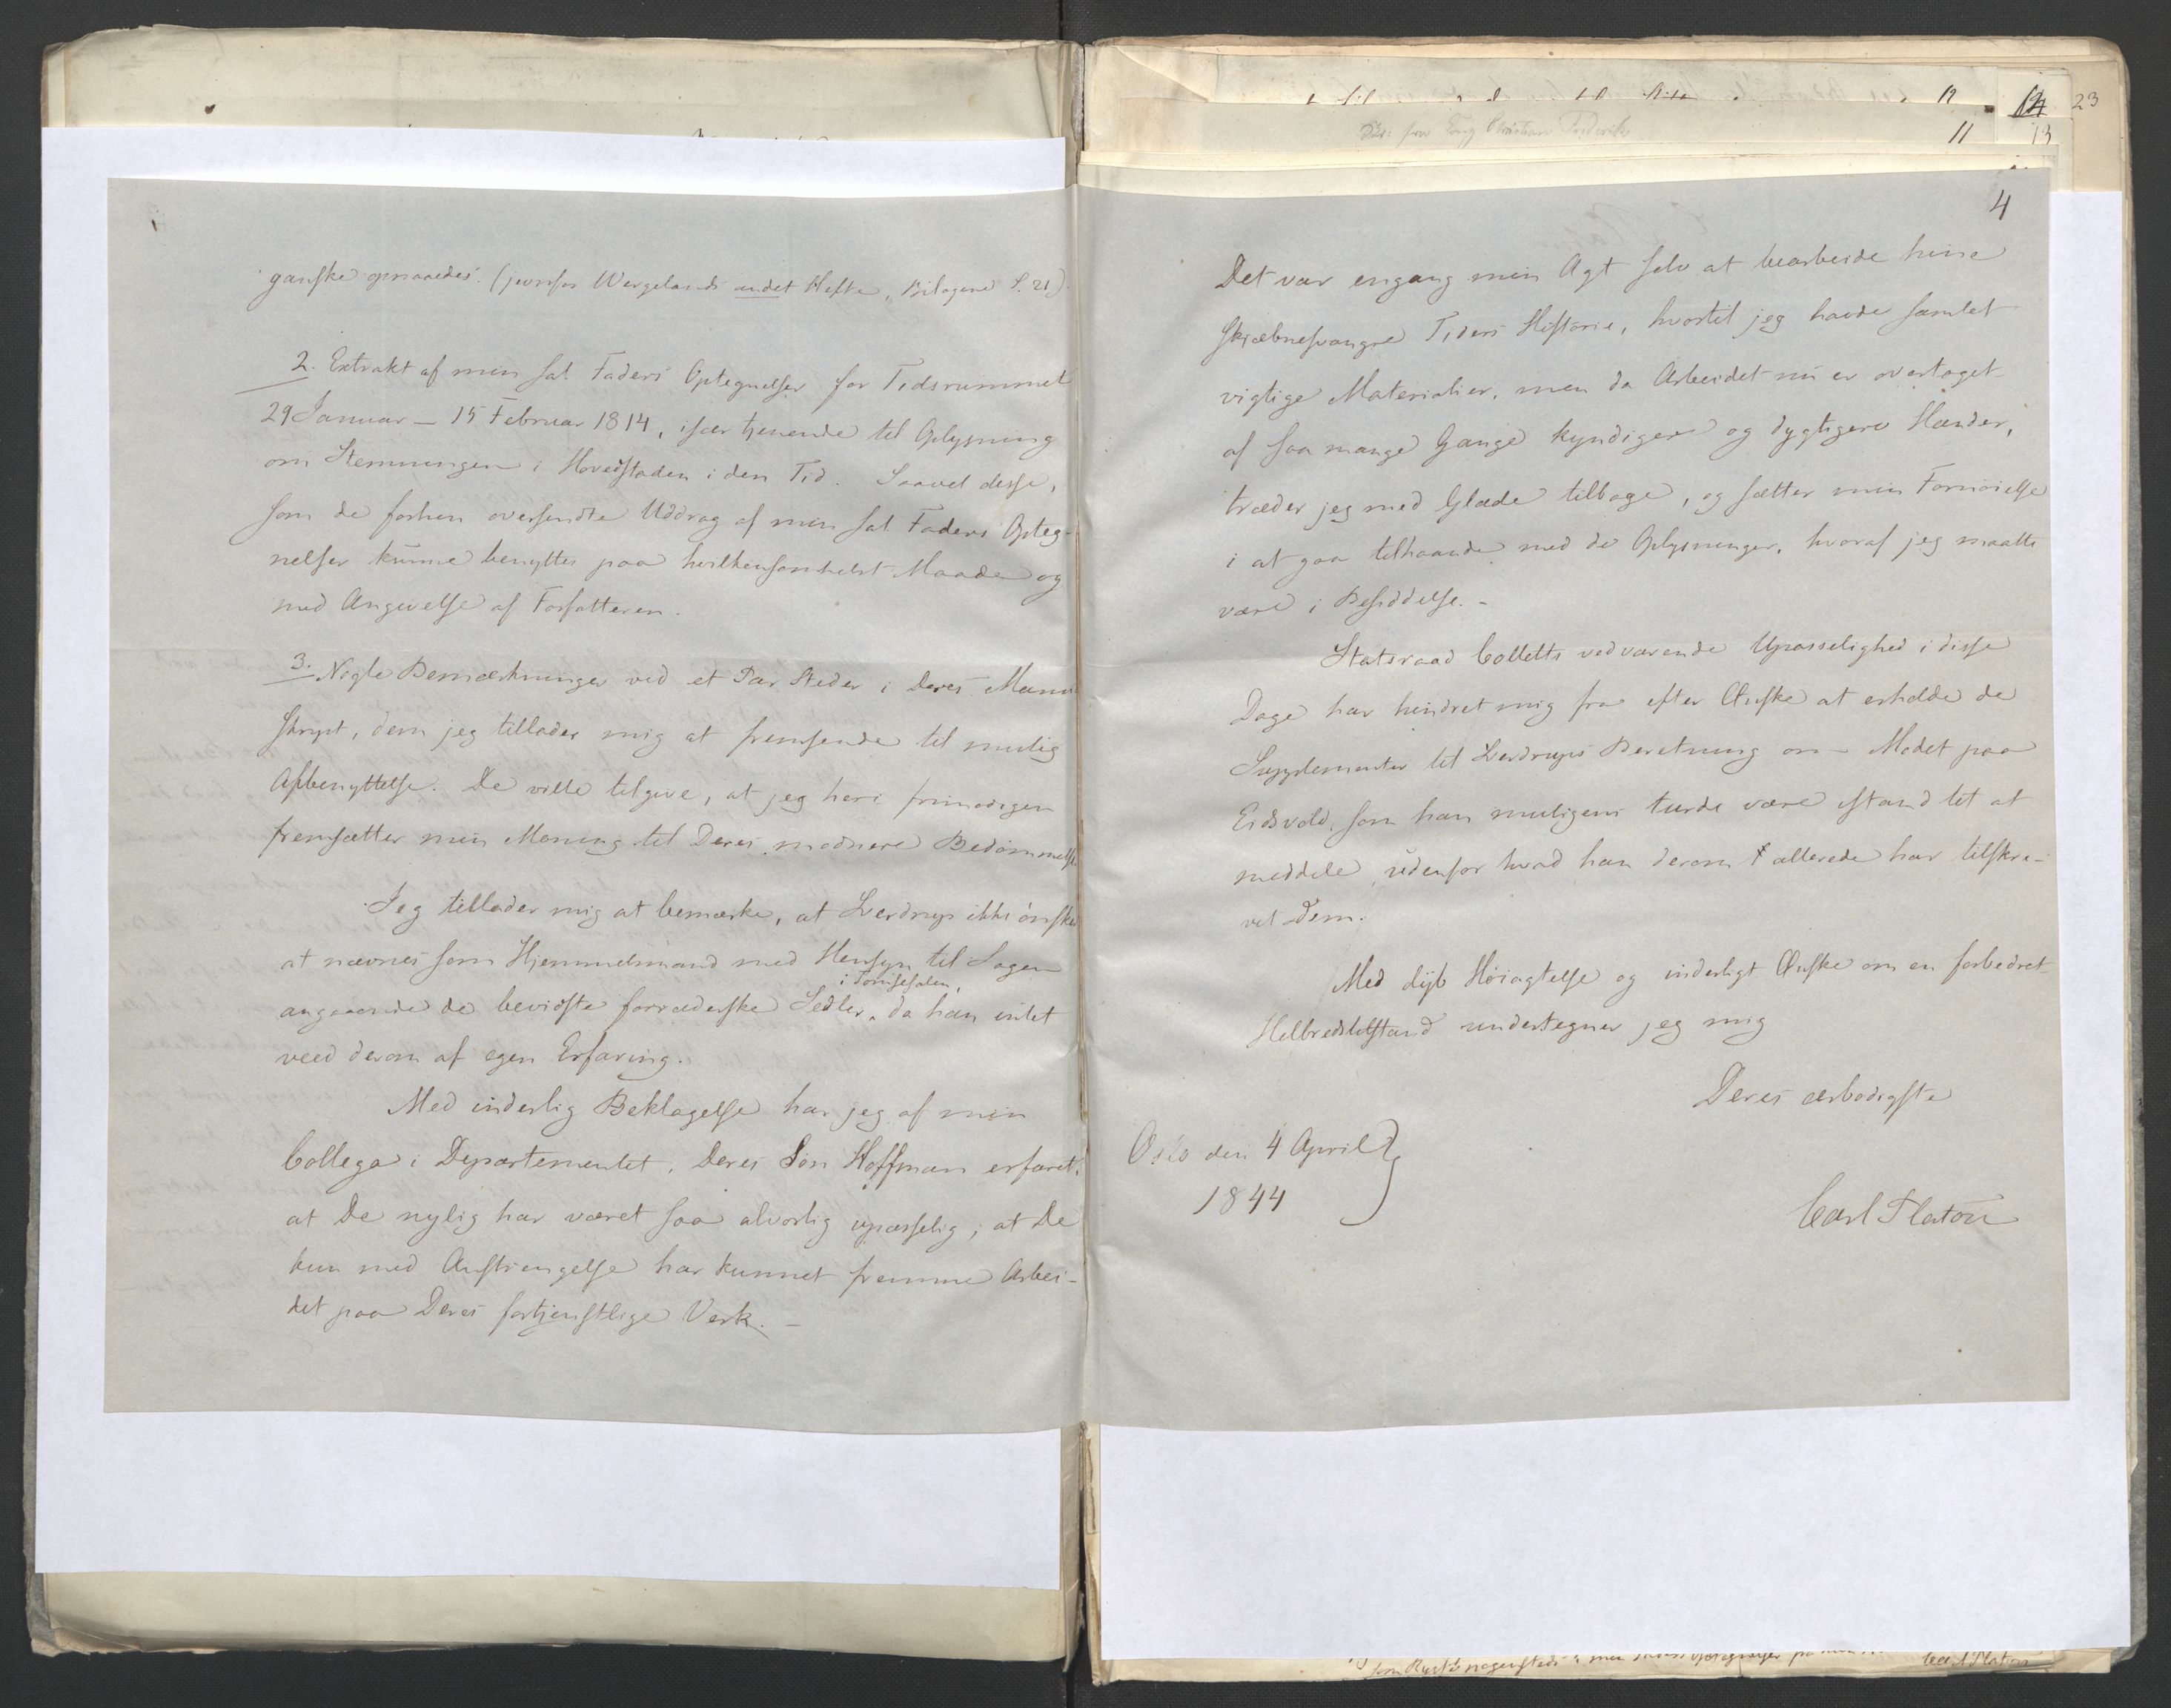 ganske opnaaedes. (jevnfør Wergelands andet Hefte, Bilagene S. 21)
2. Extrakt af min sal. Faders Optegnelser for Tidsrummet
29 Januar – 15 Februar 1814, især tjenende til Oplysning
om Stemningen i Hovedstaden i den Tid. Saavel disse,
som de forhen oversendte Uddrag af min sal. Faders Opteg-
nelser kunne benyttes paa hvilkensomhelst Maade og
med Angivelse af Forfatteren.
3. Nogle Bemærkninger ved et Par Steder i Deres Manu
skript, dem jeg tillader mig at fremsende til mulig
Afbenyttelse. De ville tilgive, at jeg heri frimodigen
fremsætter min Mening til Deres modnere Bedømmelse
Jeg tillader mig at bemærke, at Sverdrup ikke ønsker
at nævnes som Hjemmelsmand med Hensyn til Sagen
i Tronsesalen,
angaaende de bevidste forræderske Sedler, da han intet
veed derom af egen Erfaring.
Med inderlig Beklagelse har jeg af min
Collega i Departementet, Deres Søn Hoffman erfaret,
at De nylig har været saa alvorlig upasselig, at De
kun med Anstrengelse har kunnet fremme Arbei-
det paa Deres fortjenstlige Verk. –
12 23
11 13
4
Det var engang min Agt selv at bearbeide hine
skjæbnesvangre Tiders Historie, hvortil jeg havde samlet
vigtige Materialier, men da Arbeidet nu er overtaget
af saa mange Gange kyndigere og dygtigere Hænder,
træder jeg med Glæde tilbage, og sætter min Fornøielse
i at gaa tilhaande med de Oplysninger, hvoraf jeg maatte
være i Besiddelse. –
Statsraad Colletts vedvarende Upasselighed i disse
Dage har hindret mig fra efter Ønske at erholde de
Supplementer til Sverdrups Beretning om Mødet paa
Eidsvold, som han muligens turde være istand til at
meddele, udenfor hvad han derom allerede har tilskre-
vet Dem.
Med dyb Høiagtelse og inderligt Ønske om en forbedret
Helbredstilstand undertegner jeg mig
Deres ærbødigste
Oslo den 4 April
1844
Carl Platou
Carl Platou